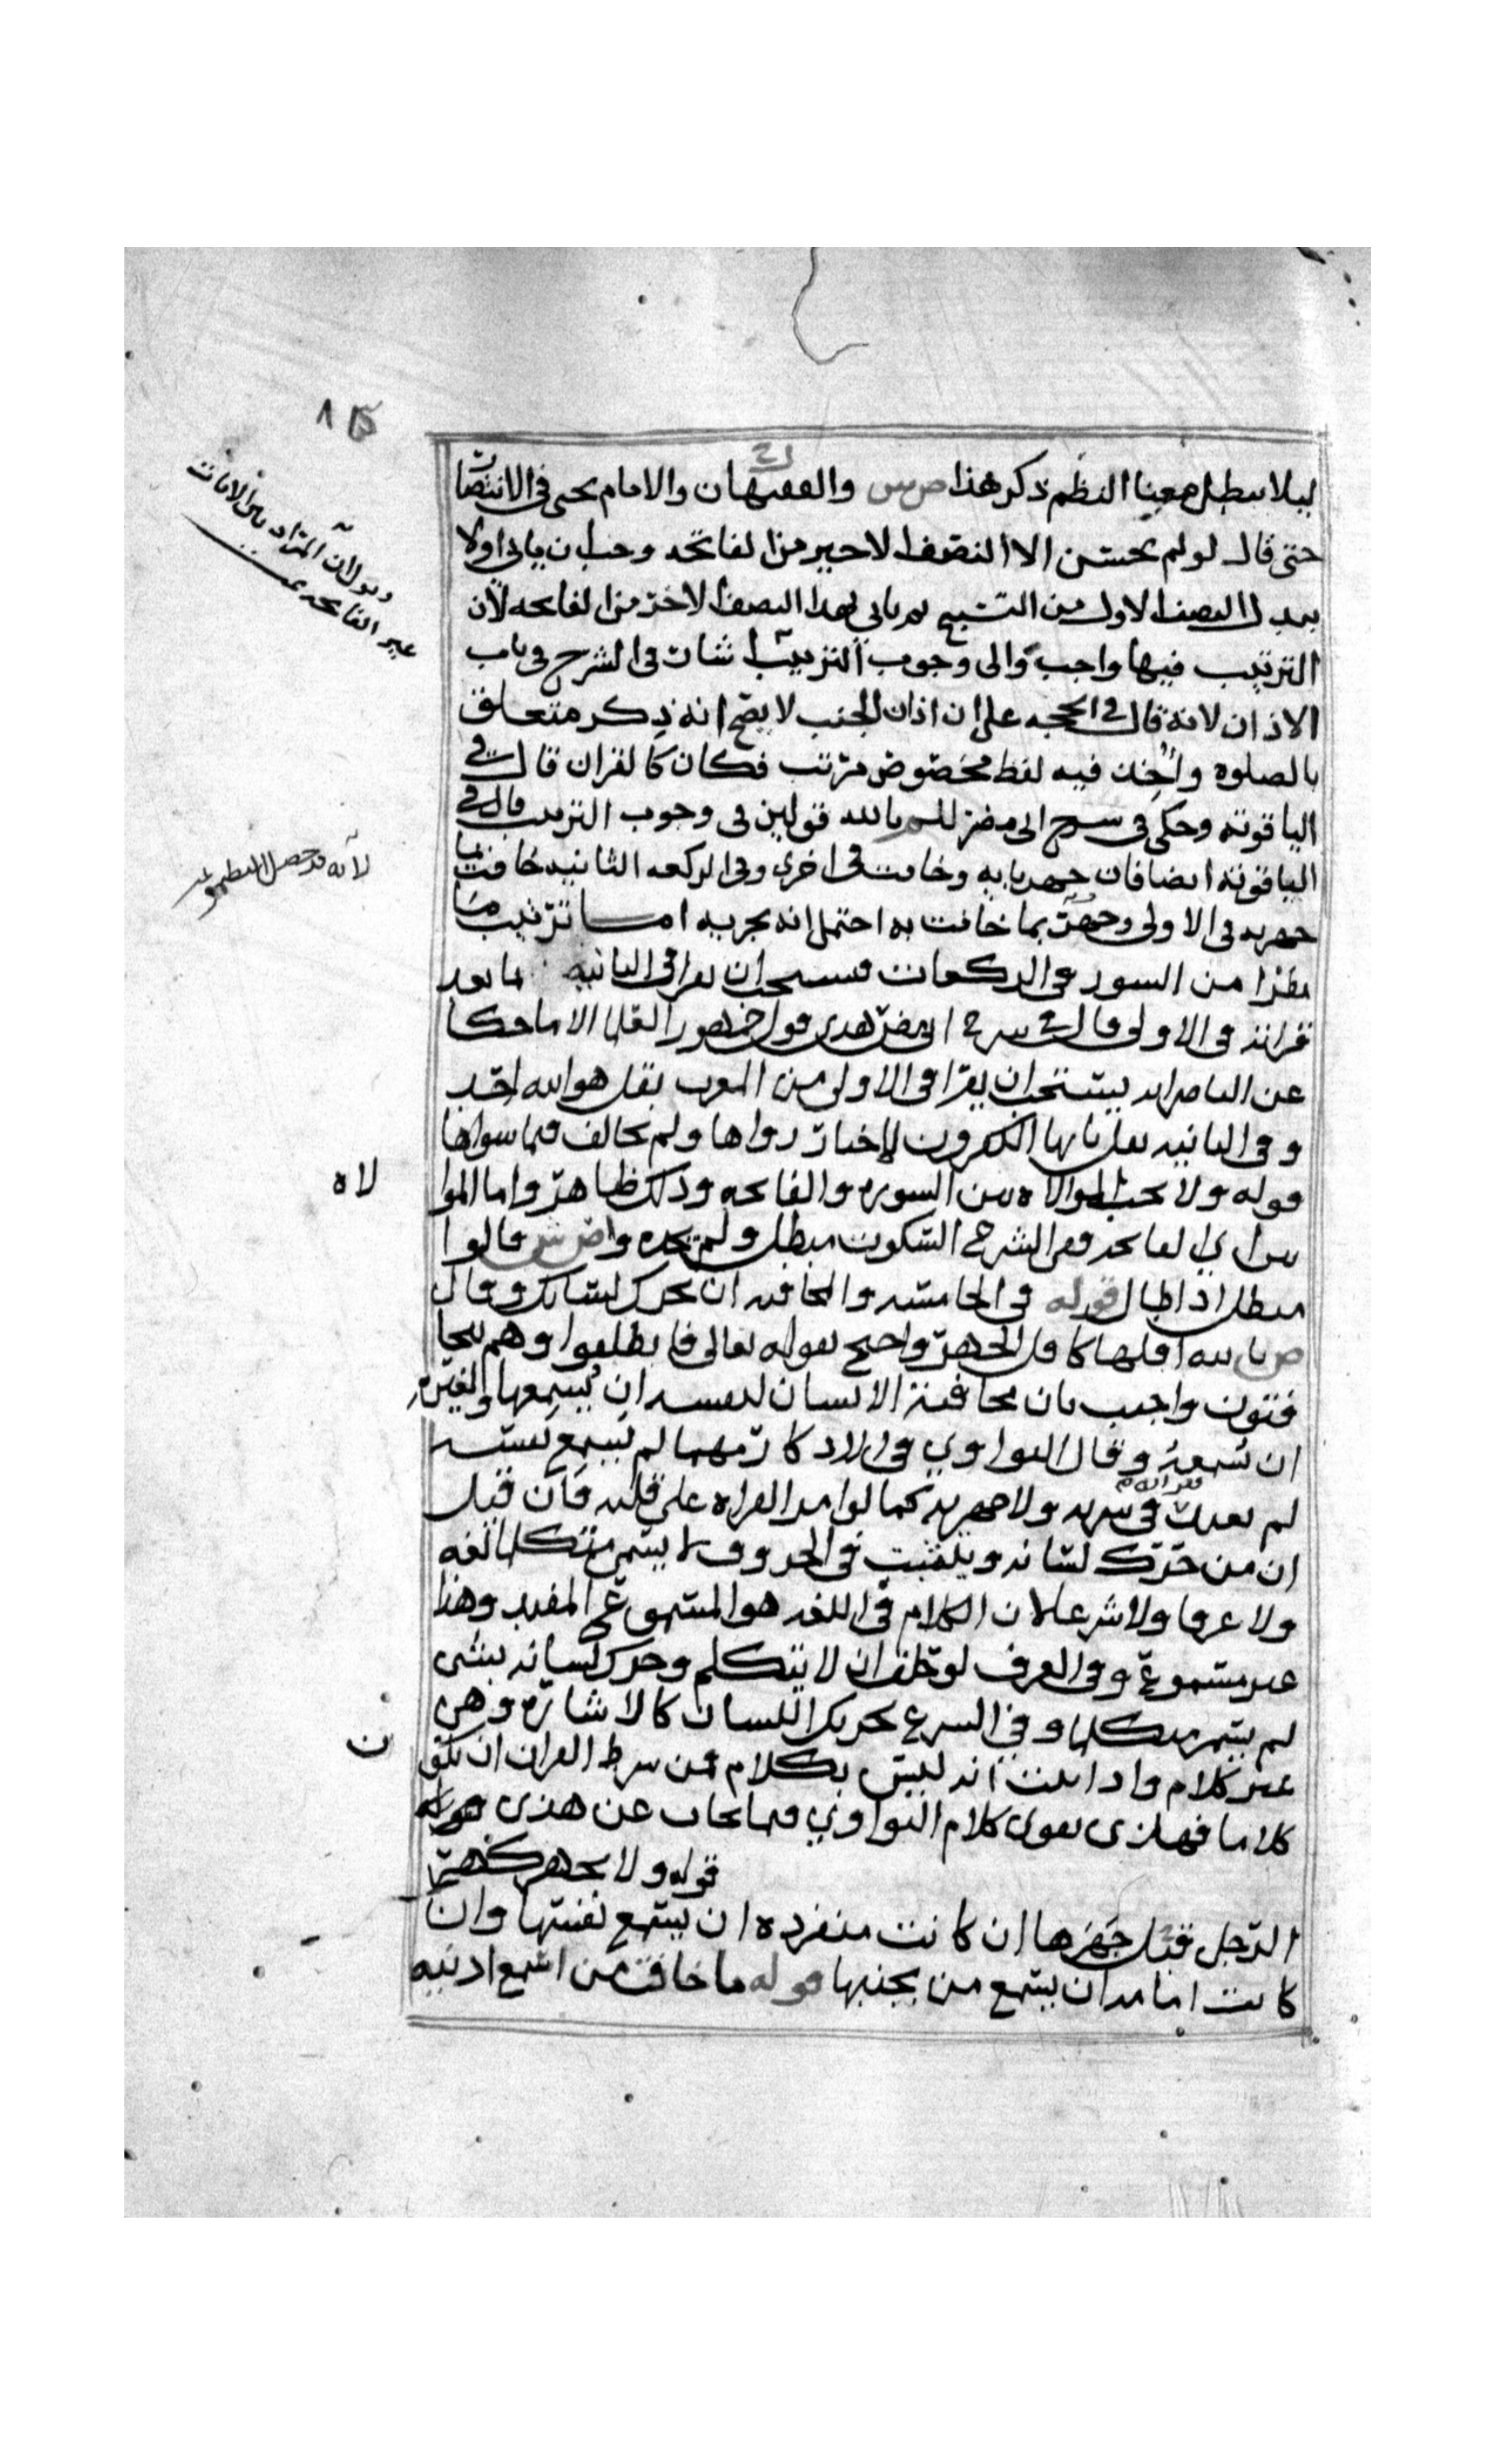 ليلا يبطل معنا النظم ذكر هذا ص س والفقيهان والامام يحيى في الانتصار
حتى قال لو لم يحسن الا النصف الاخير من الفاتحه وجب ان ياتي اولا
ببدل النصف الاول من التسبيح ثم ياتي بهذا النصف الاخر من الفاتحه لان
الترتيب فيها واجب والى وجوب الترتيب اشار في الشرح في باب
الاذان لانه قال في الحجه على ان اذان الجنب لا يصح انه ذكر متعلق
بالصلوه واخذ فيه لفظ مخصوص مرتب فكان كالقران قال في
الياقوته وحكى في شرح ابي مضر للم بالله قولين في وجوب الترتيب قال في
الياقوته ايضا فان جهر بايه وخافت في اخرى وفي الركعه الثانيه خافت بما
جهر به في الاولى وجهر بما خافت به احتمل انه يجزيه اما ترتيب ما
يقرا من السور في الركعات فيستحب ان يقرا في الثانيه ما بعد
قرانته في الاولى قال في شرح ابي مضر هذى قول جمهور العلما الا ما حكا
عن الناصر انه يستحب ان يقرا في الاولى من المغرب بقل هو الله احد
وفي الثانيه بقل يايها الكفرون لاخبار رواها ولم يخالف فيما سواها
قوله ولا يجب الموالاه بين السوره والفاتحه وذلك ظاهر واما الموا
لاه
بين اي الفاتحه ففي الشرح السكوت مبطل ولم يحده و ص ش قالوا
مبطل اذا طال قوله في الحاشيه والمخافته ان يحرك لسانك وقال
ص بالله اقلها كاقل الجهر واحتج بقوله تعالى فانطلقوا وهم يتخا
فتون واجيب بان مخافتة الانسان لنفسه ان يسمعها ولغيره
ان يسمعه وقال النواوي في الاذكار مهما لم يسمع نفسه
لم يعد قران في سريه ولا جهريه كما لو امر القراه على قلبه فان قيل
ان من حرك لسانه ويثبت في الحروف لا يسمى متكلما لغه
ولا عرفا ولا شرعا لان الكلام في اللغه هو المسموع المفيد وهذا
غير مسموع وفي العرف لو حلف ان لا يتكلم وحرك لسانه بشي
لم يسم متكلما وفي الشرع تحريك اللسان كالاشاره وهي
غير كلام واذا ثبت انه ليس بكلام فمن شرط القران ان يكو
ن
كلاما فهذى يقوى كلام النواوي فما يجاب عن هذى
قوله ولا يجهر كجهر
الرجل قيل جهرها ان كانت منفرده ان يسمع نفسها وان
كانت امامه ان يسمع من بجنبها قوله ما خافت من اسمع اذنيه
غير الفاتحه